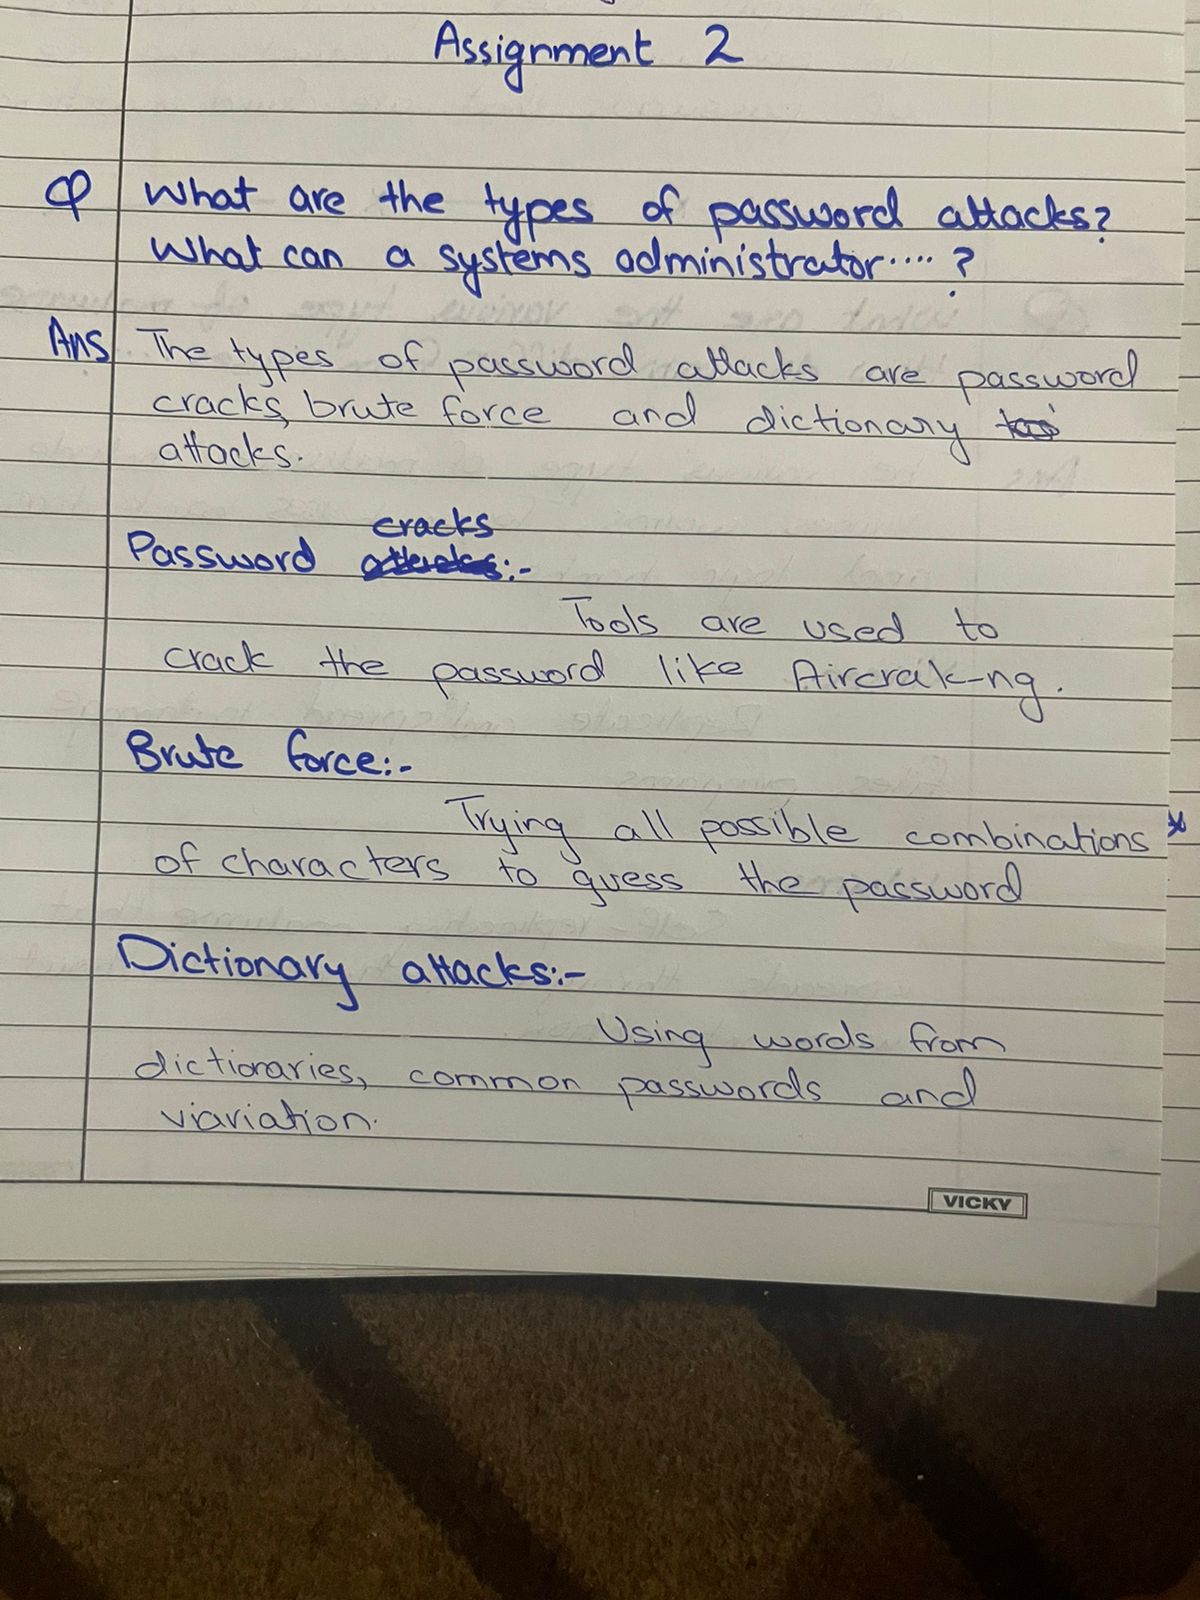 Assignment 2
Q What are the types of password attacks?
What can a systems administrator....?
Ans The types of password attacks are password
cracks, brute force and dictionary
attacks.
cracks
Password attacks:-
Tools are used to
crack the password like Aircrak-ng.
Brute force:-
Trying all possible combinations
of characters to guess the password
Dictionary attacks:-
Using words from
dictionaries, common passwords and
viariation.
VICKY